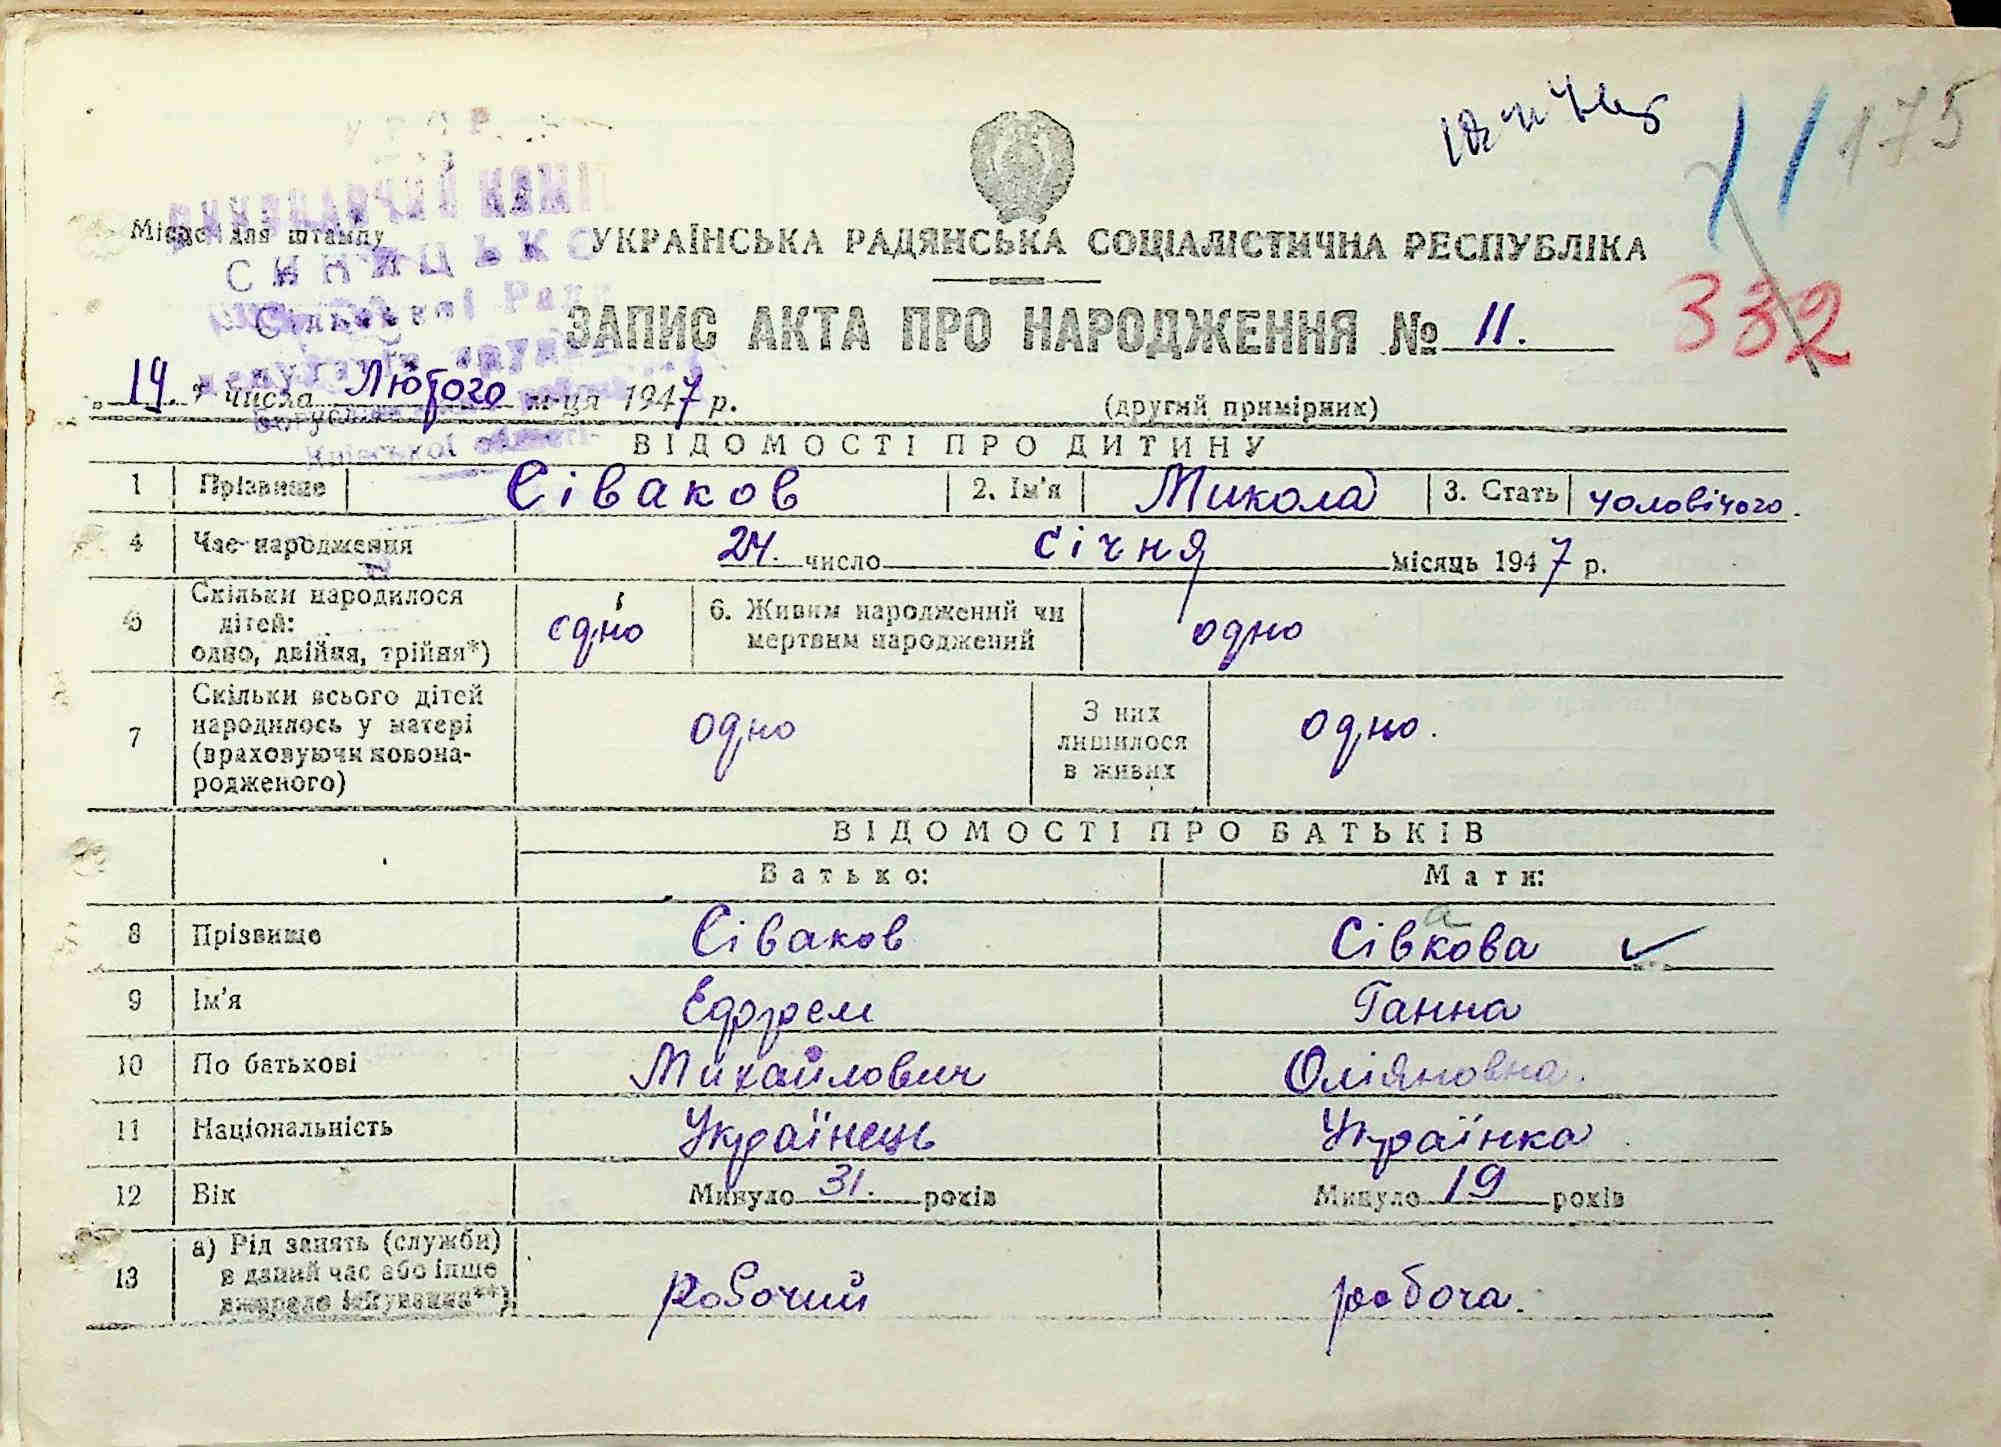 175
11
332
У Р С Р
ВИКОНАВЧИЙ КОМІ
Місце для штампу
СИНИЦЬКО
Сільської Ради
Київської області
УКРАЇНСЬКА РАДЯНСЬКА СОЦІАЛІСТИЧНА РЕСПУБЛІКА
ЗАПИС АКТА ПРО НАРОДЖЕННЯ № 11.
„19." числа Лютого м-ця 1947 р.
(другий примірник)
ВІДОМОСТІ ПРО ДИТИНУ
1 Прізвище Сіваков 2. Ім'я Микола 3. Стать чоловічого.
4 Час народження 24. число Січня місяць 1947 р.
5 Скільки народилося дітей: одно, двійня, трійня*) одно 6. Живим народжений чи мертвим народжений одно
7 Скільки всього дітей народилось у матері (враховуючи новонародженого) одно З них лишилося в живих одно.
ВІДОМОСТІ ПРО БАТЬКІВ
Батько: Мати:
8 Прізвище Сіваков Сівакова
9 Ім'я Ефрем Ганна
10 По батькові Михайлович Оліяновна.
11 Національність Українець Українка.
12 Вік Минуло 31. років Минуло 19 років
13 а) Рід занять (служби) в даний час або інше джерело існування**) робочий робоча.